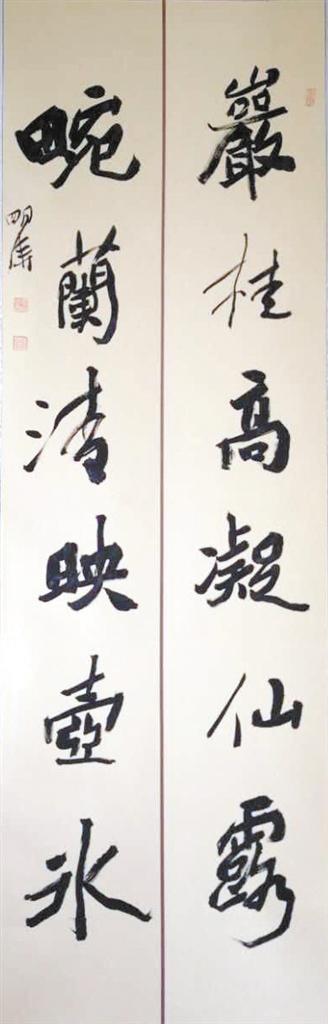 巖桂高凝仙露
畹蘭清映壺冰